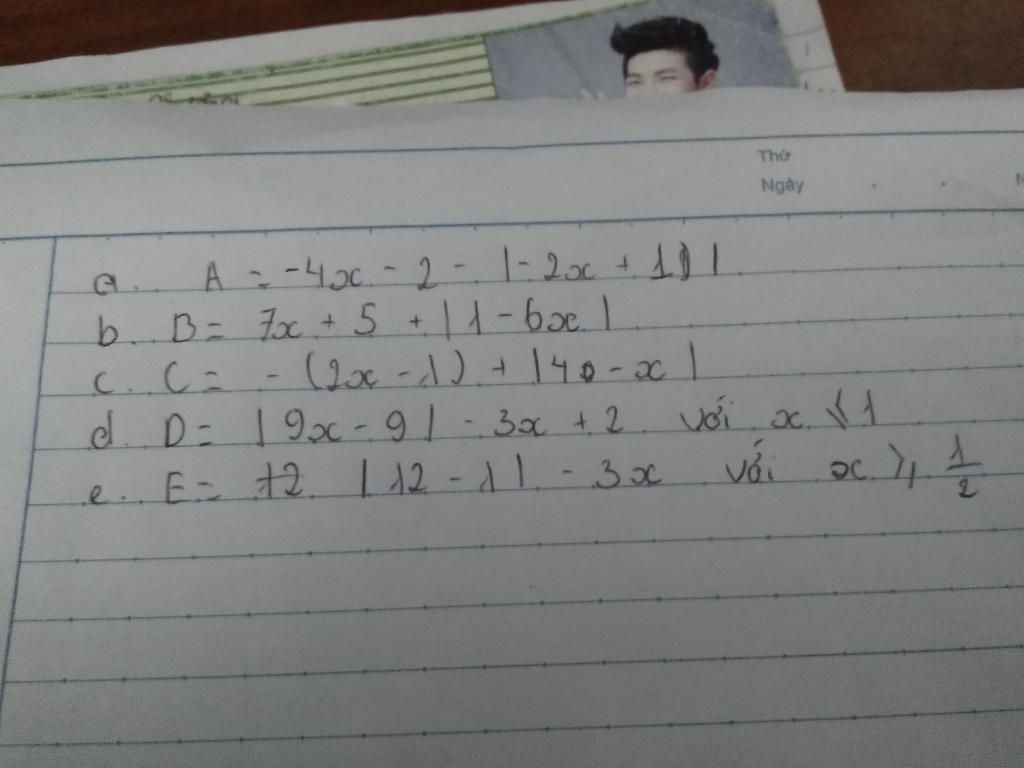 Thứ
Ngày
a. A = -4x - 2 - |-2x + 1|
b. B = 7x + 5 + |1 - 6x|
c. C = - (2x - 1) + |40 - x|
d. D = |9x - 9| - 3x + 2 với x < 1
e. E = +2 |12 - 1| - 3x với x ≥ 1/2